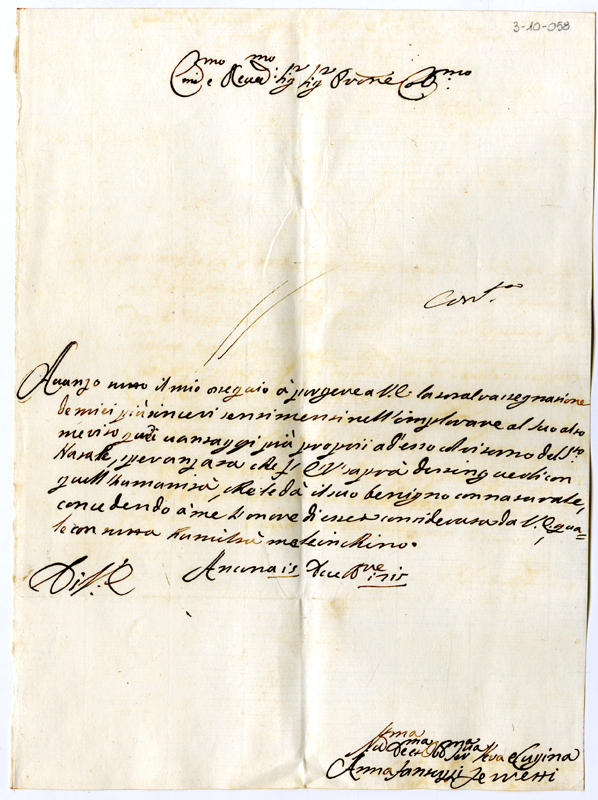 3-10-058
Em.mo e Reue.mo Sig.r Sig.r P.rone Col.mo
Cont.
Auanzo tutto il mio ossequio à porgere a V.E. la total rasegnazione
de miei più sinceri sentimenti nell'implorare al suo alto
merito gl'auanzaggi più proprii ad esso al ritorno del S.to
Natale, speranzata che l'E.V. saprà distinguerli con
quell'humanità, che le dà il suo benigno connaturale,
concedendo à me l'onore di esser considerata da V.E. qua-
le con tutta humiltà me le inchino.
Di V.E. Ancona 15 Dece.bre 1715
Vm.ma Deu.ma Obb.ma Ser.ua Vera e Cugina
Anna Ferretti